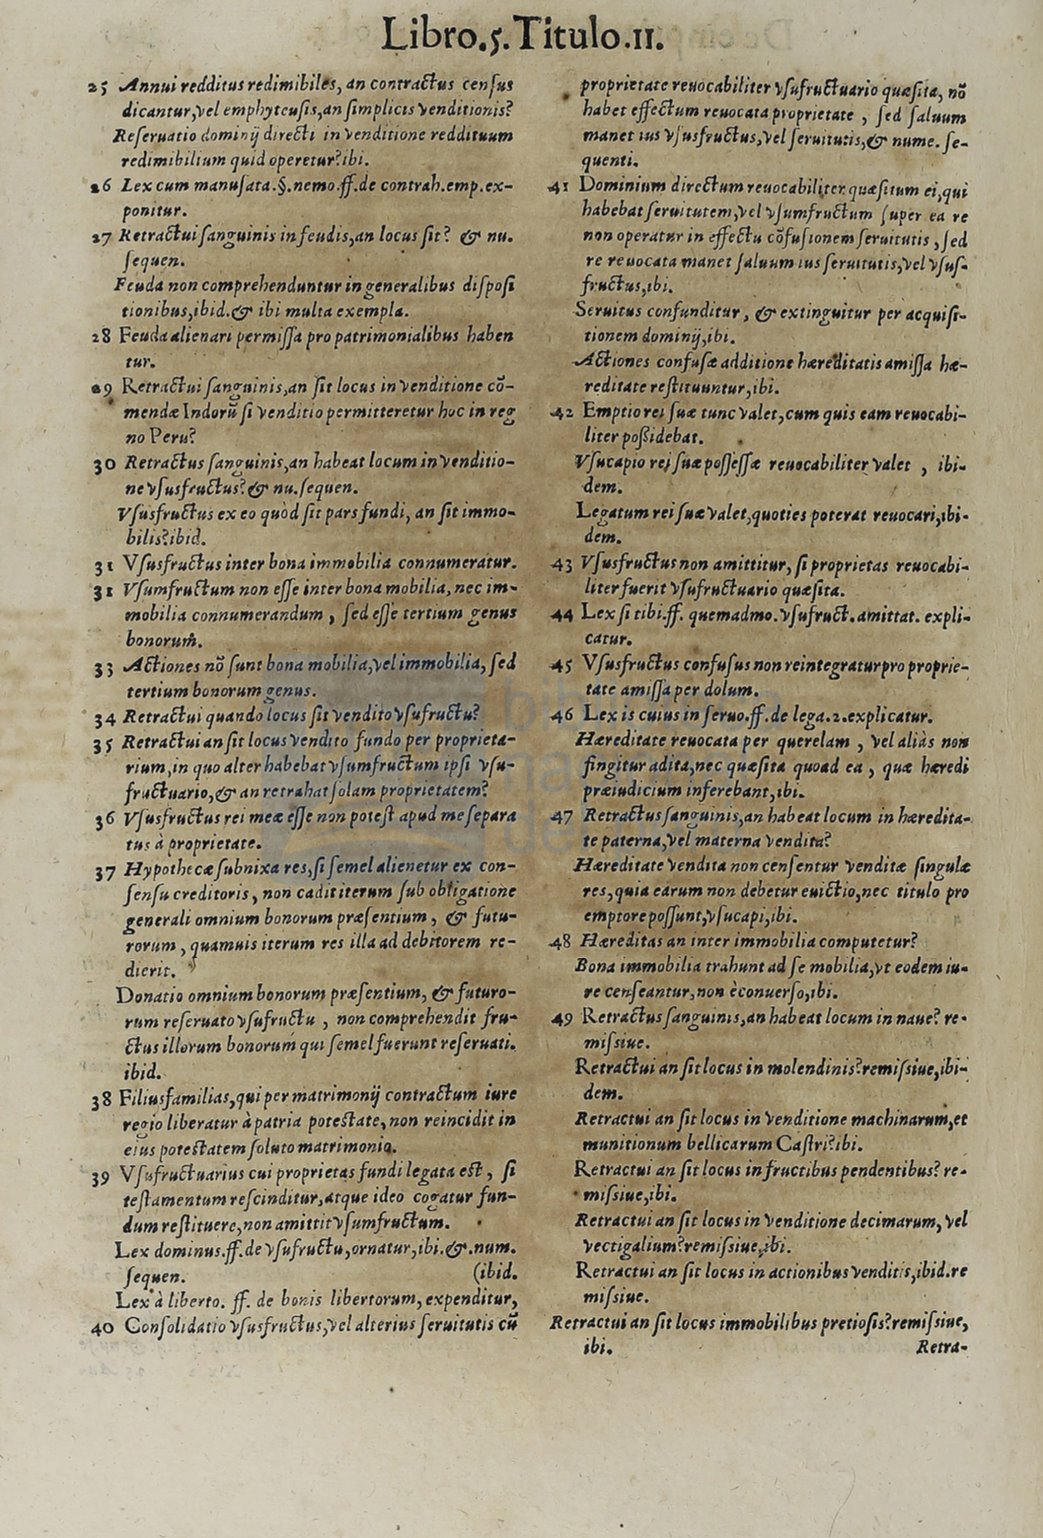 Libro.5.Titulo.11.
25 Annui redditus redimibiles, an contractus census
dicantur, vel emphyteusis, an simplicis venditionis?
Reseruatio dominij directi in venditione reddituum
redimibilium quid operetur? ibi.
26 Lex cum manusata.§.nemo.ff.de contrah.emp.ex-
ponitur.
27 Retractui sanguinis in feudis, an locus sit? & nu.
sequen.
Feuda non comprehenduntur in generalibus disposi
tionibus, ibid. & ibi multa exempla.
28 Feuda alienari permissa pro patrimonialibus haben
tur.
29 Retractui sanguinis, an sit locus in venditione cō-
mendæ Indorū si venditio permitteretur hoc in reg
no Peru?
30 Retractus sanguinis, an habeat locum in venditio-
ne vsusfructus? & nu. sequen.
Vsusfructus ex eo quòd sit pars fundi, an sit immo-
bilis? ibid.
31 Vsusfructus inter bona immobilia connumeratur.
31 Vsumfructum non esse inter bona mobilia, nec im-
mobilia connumerandum, sed esse tertium genus
bonorum.
33 Actiones nō sunt bona mobilia, vel immobilia, sed
tertium bonorum genus.
34 Retractui quando locus sit vendito vsufructu?
35 Retractui an sit locus vendito fundo per proprieta-
rium, in quo alter habebat vsumfructum ipsi vsu-
fructuario, & an retrahat solam proprietatem?
36 Vsusfructus rei meæ esse non potest apud me separa
tus à proprietate.
37 Hypothecæ subnixa res, si semel alienetur ex con-
sensu creditoris, non cadit iterum sub obligatione
generali omnium bonorum præsentium, & futu-
rorum, quamuis iterum res illa ad debitorem re-
dierit.
Donatio omnium bonorum præsentium, & futuro-
rum reseruato vsufructu, non comprehendit fru-
ctus illorum bonorum qui semel fuerunt reseruati.
ibid.
38 Filiusfamilias, qui per matrimonij contractum iure
regio liberatur à patria potestate, non reincidit in
eius potestatem soluto matrimonio.
39 Vsufructuarius cui proprietas fundi legata est, si
testamentum rescinditur, atque ideo cogatur fun-
dum restituere, non amittit vsumfructum.
Lex dominus.ff.de vsufructu, ornatur, ibi.&.num.
sequen. (ibid.
Lex à liberto. ff. de bonis libertorum, expenditur,
40 Consolidatio vsusfructus, vel alterius seruitutis cū
proprietate reuocabiliter vsufructuario quæsita, nō
habet effectum reuocata proprietate, sed saluum
manet ius vsusfructus, vel seruitutis, & nume. se-
quenti.
41 Dominium directum reuocabiliter quæsitum ei, qui
habebat seruitutem, vel vsumfructum super ea re
non operatur in effectu cōfusionem seruitutis, sed
re reuocata manet saluum ius seruitutis, vel vsus-
fructus, ibi.
Seruitus confunditur, & extinguitur per acquisi-
tionem dominij, ibi.
Actiones confusæ additione hæreditatis amissa hæ-
reditate restituuntur, ibi.
42 Emptio rei suæ tunc valet, cum quis eam reuocabi-
liter possidebat.
Vsucapio rei suæ possessæ reuocabiliter valet, ibi-
dem.
Legatum rei suæ valet, quoties poterat reuocari, ibi-
dem.
43 Vsusfructus non amittitur, si proprietas reuocabi-
liter fuerit vsufructuario quæsita.
44 Lex si tibi.ff. quemadmo. vsufruct. amittat. expli-
catur.
45 Vsusfructus confusus non reintegratur pro proprie-
tate amissa per dolum.
46 Lex is cuius in seruo.ff.de lega.2.explicatur.
Hæreditate reuocata per querelam, vel aliàs non
fingitur adita, nec quæsita quoad ea, quæ hæredi
præiudicium inferebant, ibi.
47 Retractus sanguinis, an habeat locum in hæredita-
te paterna, vel materna vendita?
Hæreditate vendita non censentur venditæ singulæ
res, quia earum non debetur euictio, nec titulo pro
emptore possunt, vsucapi, ibi.
48 Hæreditas an inter immobilia computetur?
Bona immobilia trahunt ad se mobilia, vt eodem iu-
re censeantur, non èconuerso, ibi.
49 Retractus sanguinis, an habeat locum in naue? re-
missiue.
Retractui an sit locus in molendinis? remissiue, ibi-
dem.
Retractui an sit locus in venditione machinarum, et
munitionum bellicarum Castri? ibi.
Retractui an sit locus in fructibus pendentibus? re-
missiue, ibi.
Retractui an sit locus in venditione decimarum, vel
vectigalium? remissiue, ibi.
Retractui an sit locus in actionibus venditis, ibid. re
missiue.
Retractui an sit locus immobilibus pretiosis? remissiue,
ibi. Retra-